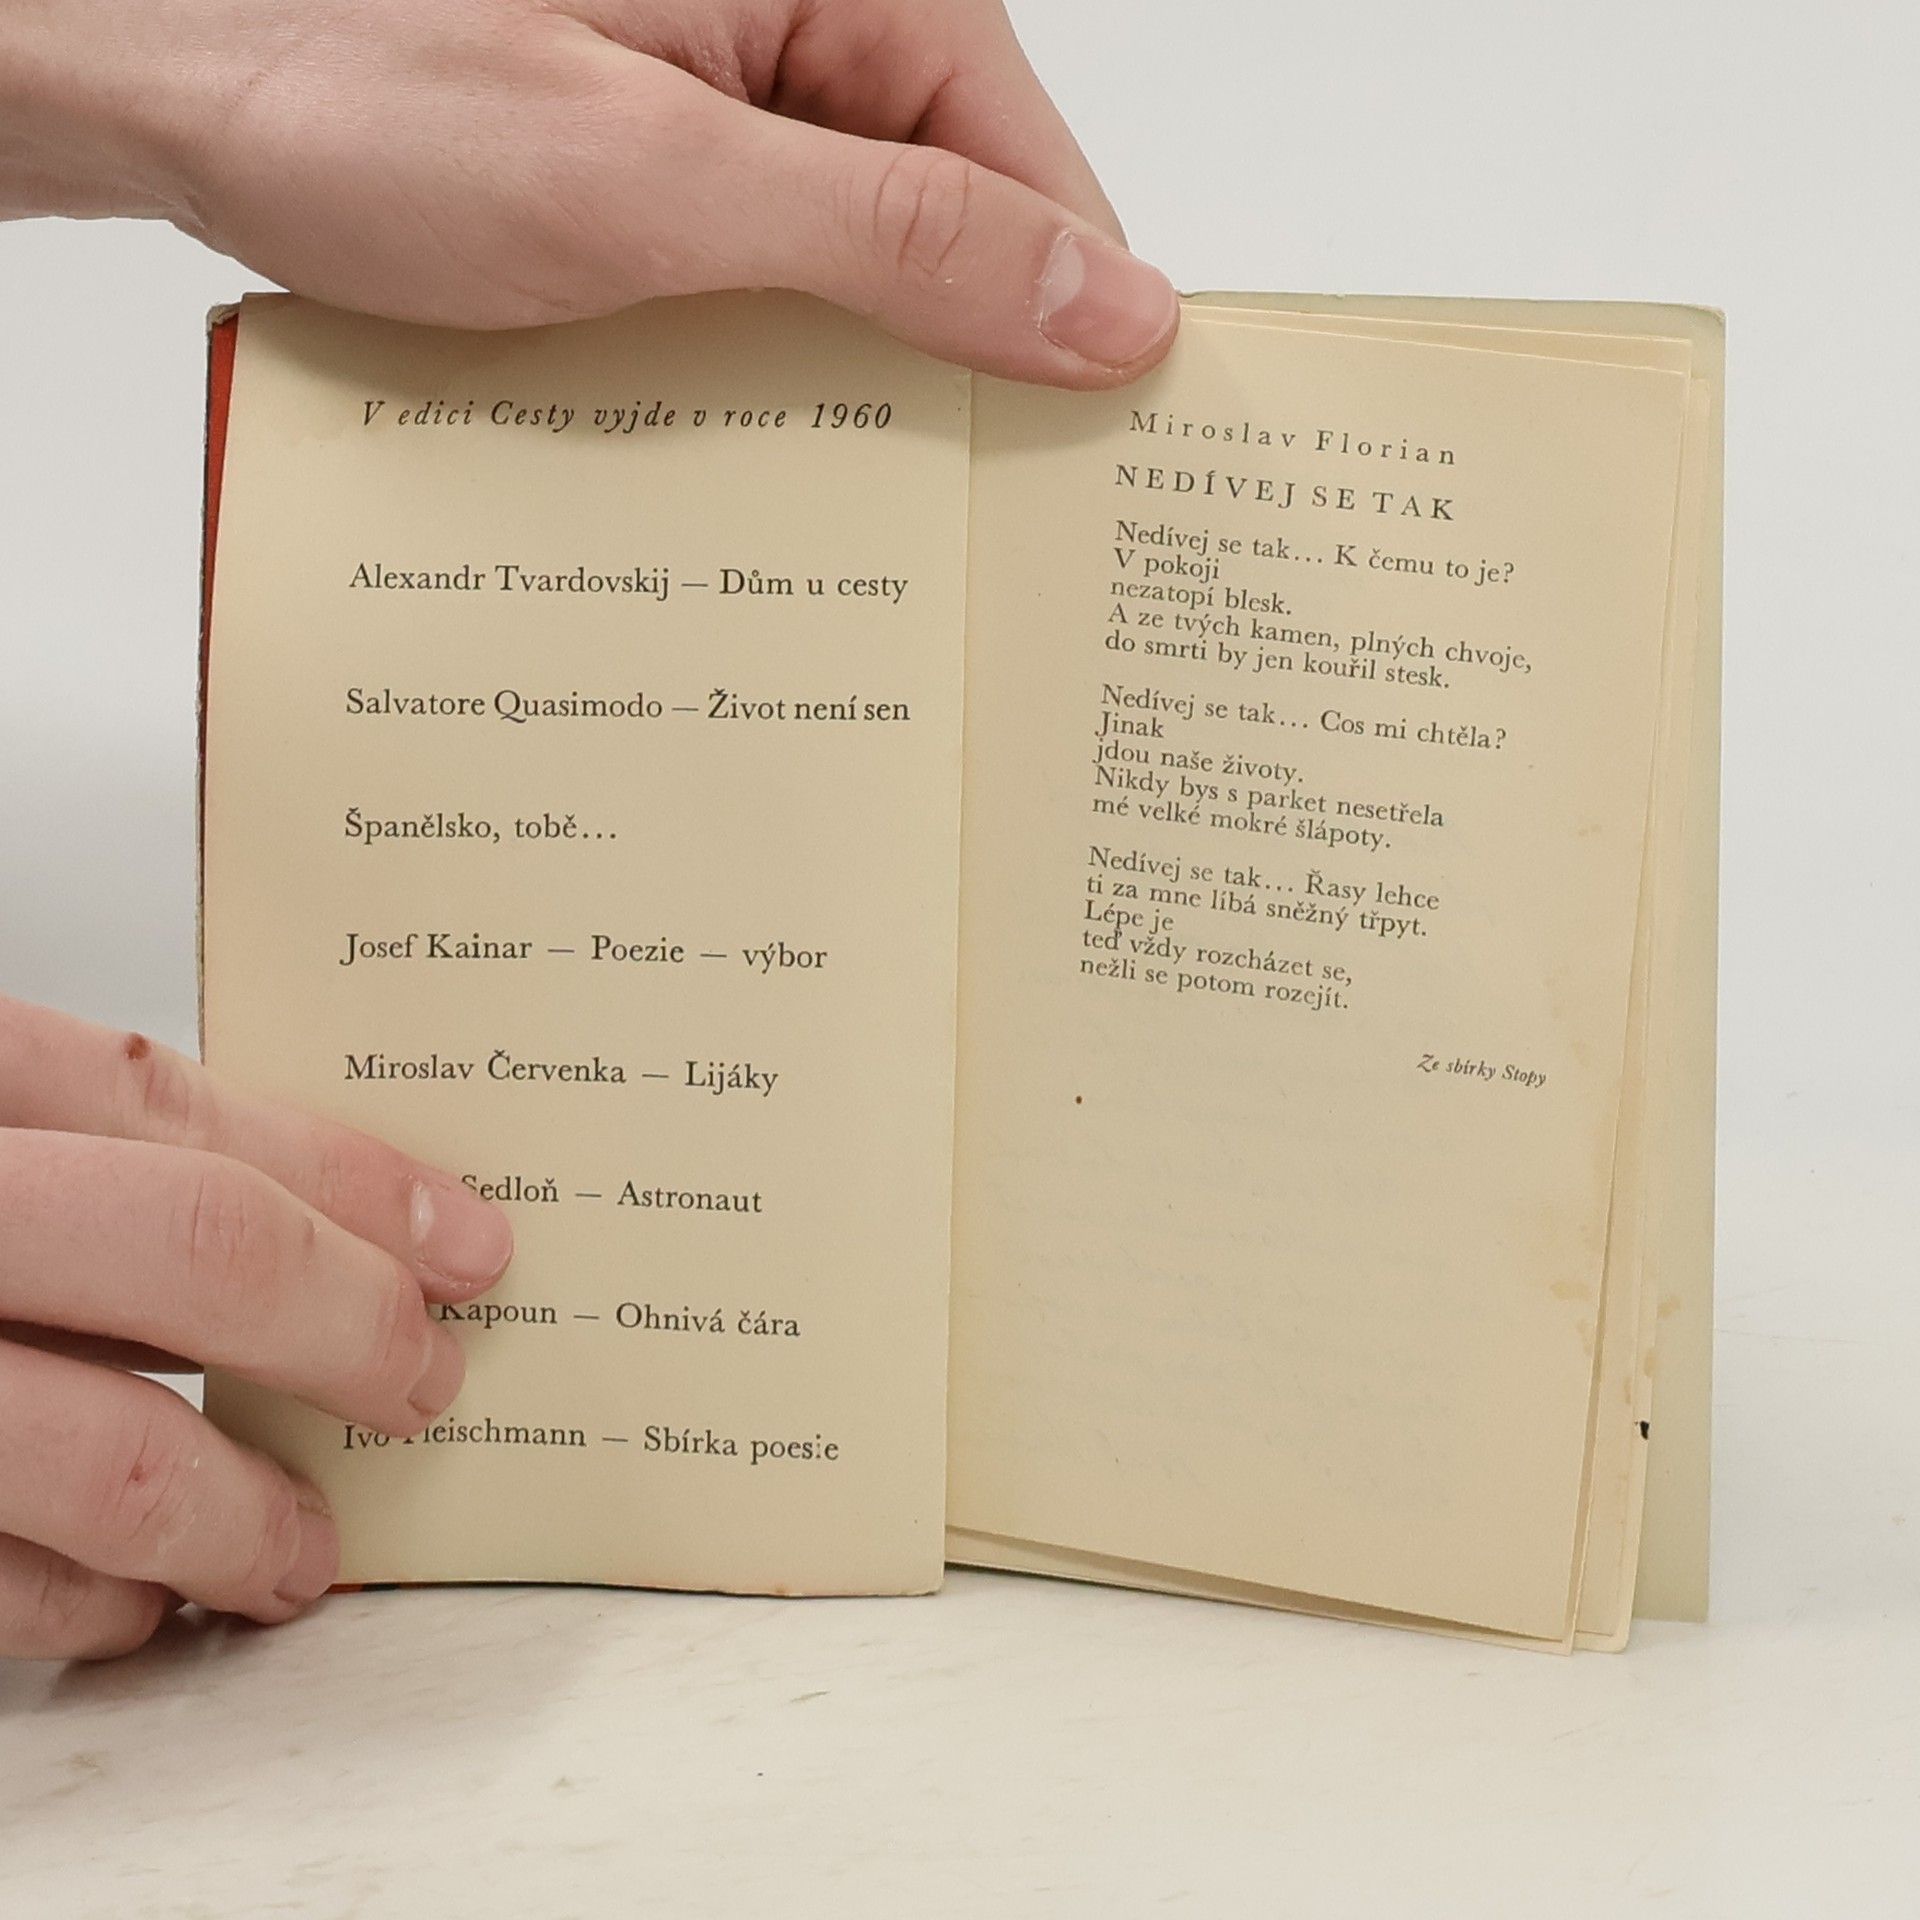 V edici Cesty vyjde v roce 1960
Alexandr Tvardovskij — Dům u cesty
Salvatore Quasimodo — Život není sen
Španělsko, tobě...
Josef Kainar — Poezie — výbor
Miroslav Červenka — Lijáky
Sedloň — Astronaut
Kapoun — Ohnivá čára
Ivo Fleischmann — Sbírka poesie
Miroslav Florian
NEDÍVEJ SE TAK
Nedívej se tak... K čemu to je?
V pokoji
nezatopí blesk.
A ze tvých kamen, plných chvoje,
do smrti by jen kouřil stesk.
Nedívej se tak... Cos mi chtěla?
Jinak
jdou naše životy.
Nikdy bys s parket nesetřela
mé velké mokré šlápoty.
Nedívej se tak... Řasy lehce
ti za mne líbá sněžný třpyt.
Lépe je
teď vždy rozcházet se,
nežli se potom rozejít.
Ze sbírky Stopy